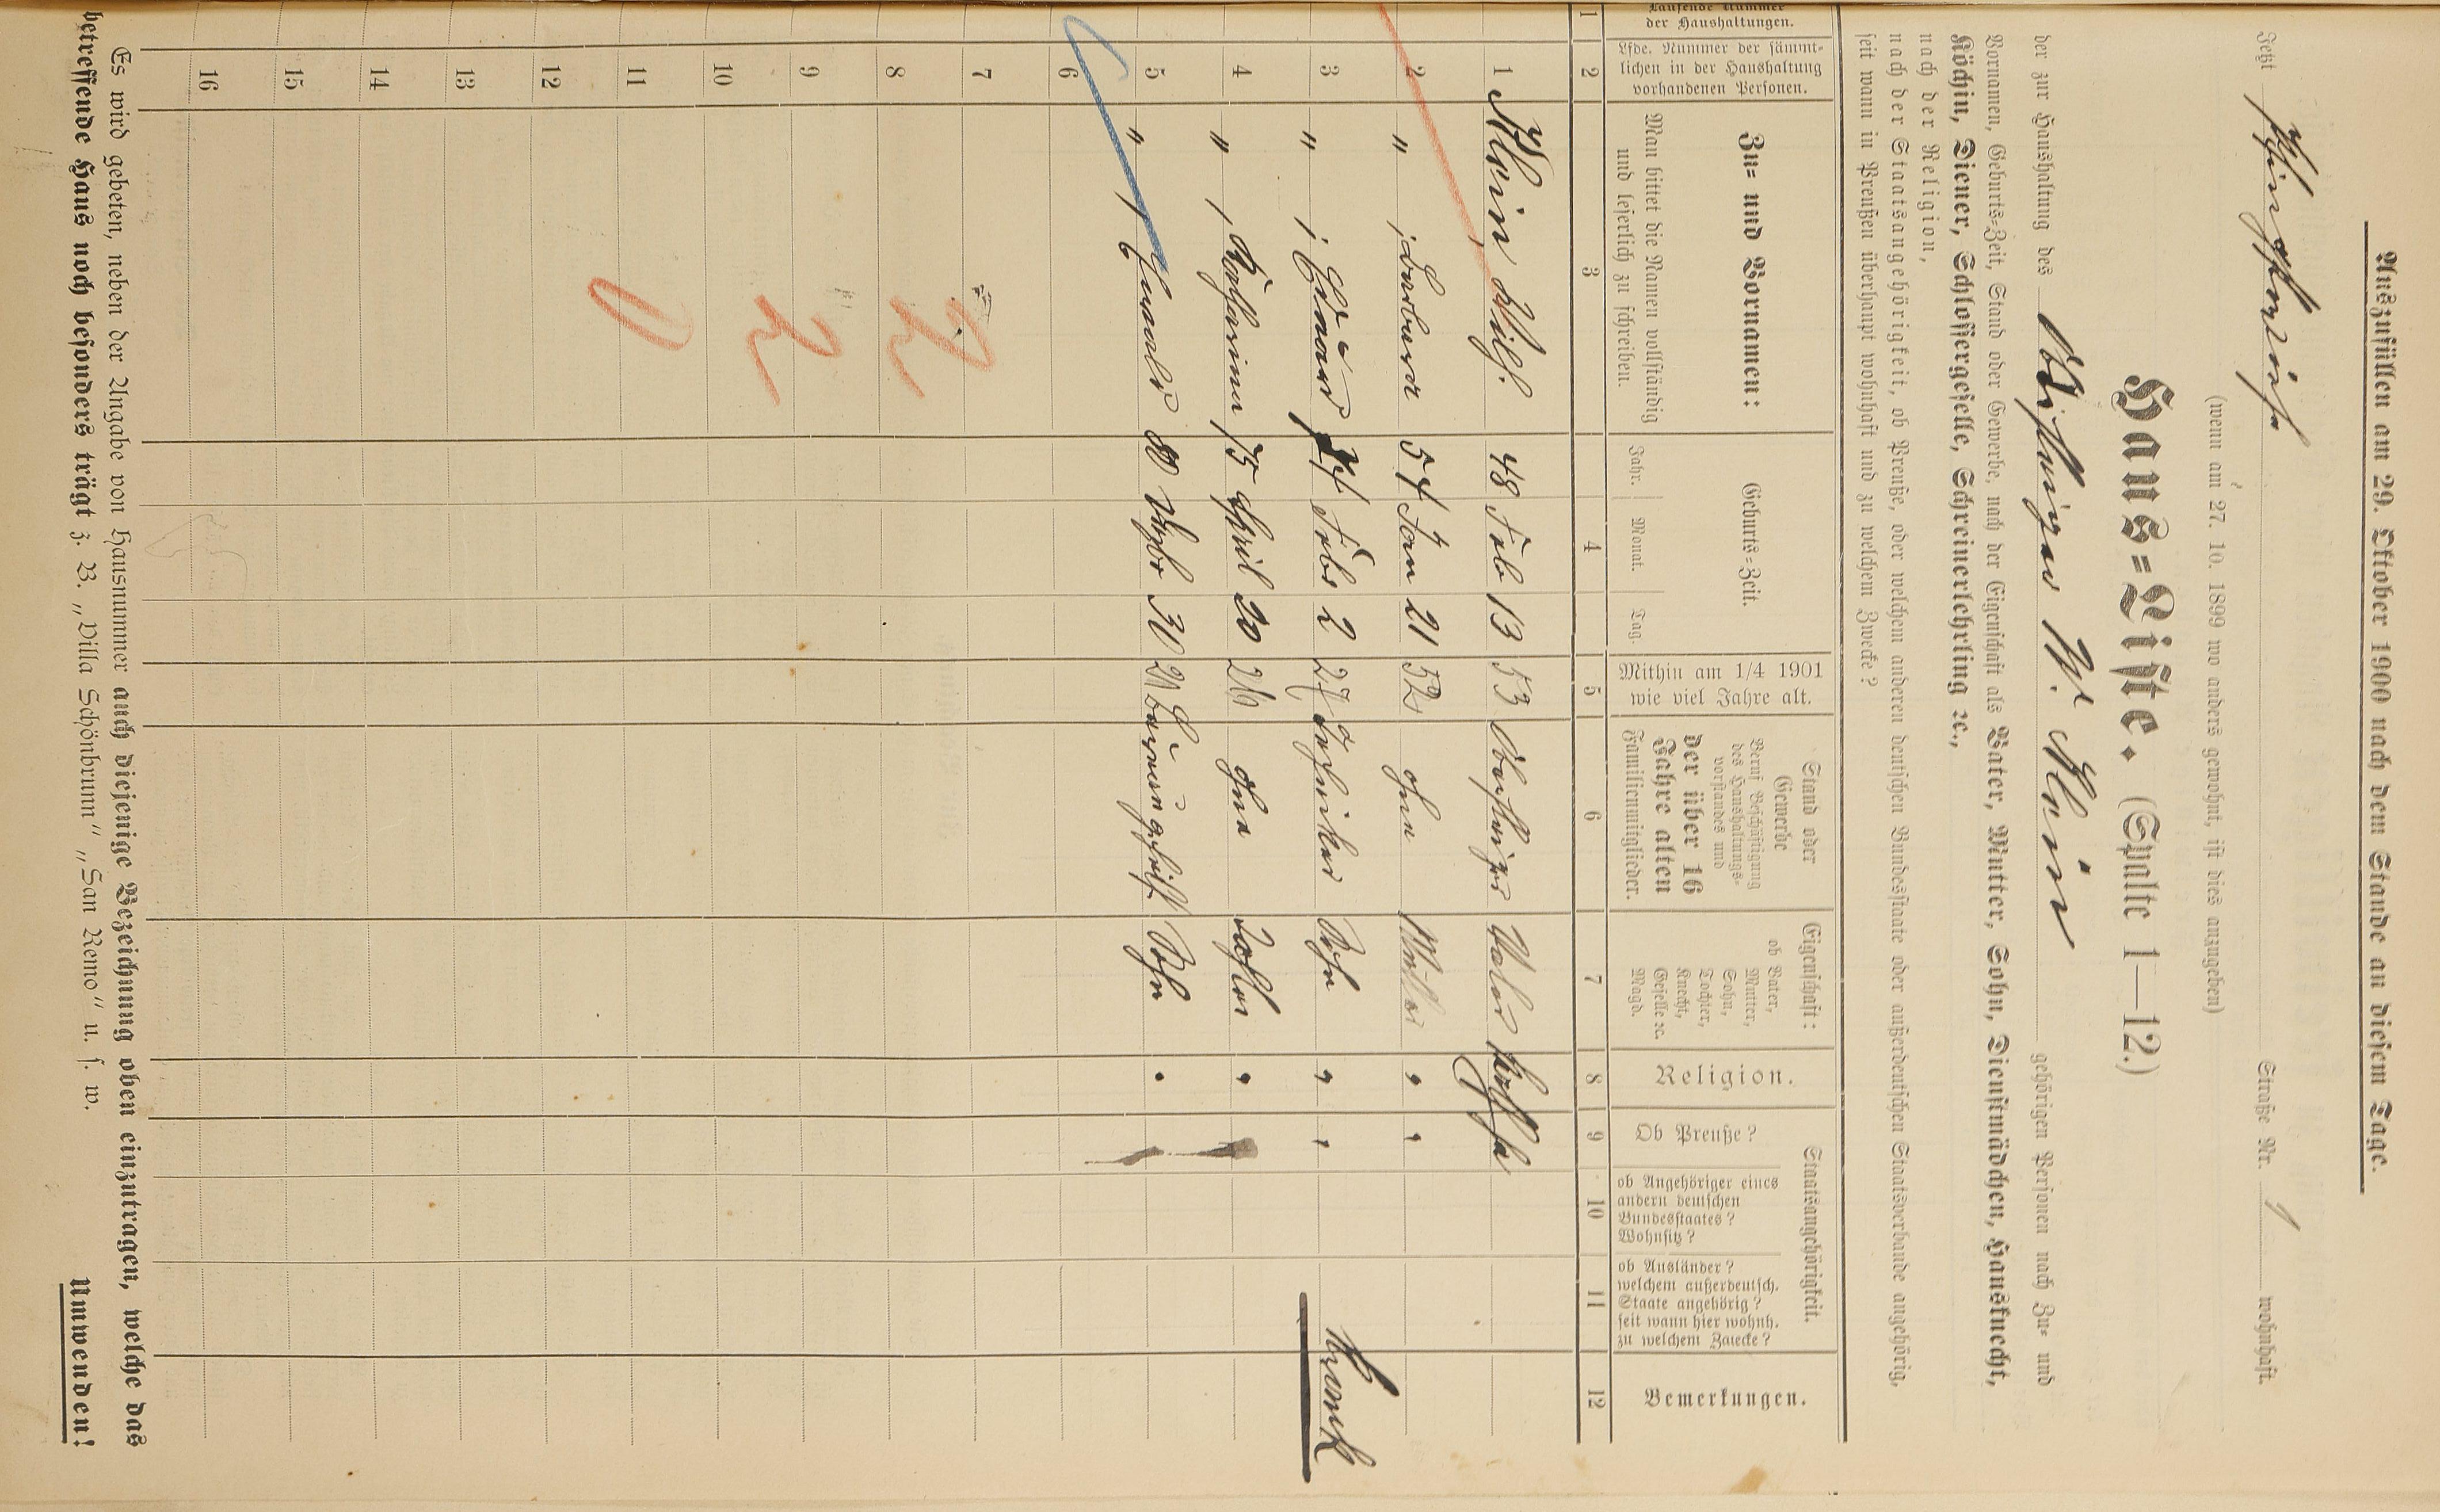 Auszufüllen am 29. Oktober 1900 nach dem Stande an diesem Tage.
Jetzt Straße Nr. 1 wohnhaft.
(wenn am 27. 10. 1899 wo anders gewohnt, ist dies anzugeben)
Haus-Liste. (Spalte 1—12.)
der zur Haushaltung des W. Klein gehörigen Personen nach Zu- und
Vornamen, Geburts-Zeit, Stand oder Gewerbe, nach der Eigenschaft als Vater, Mutter, Sohn, Dienstmädchen, Hausknecht,
Köchin, Diener, Schlossergeselle, Schreinerlehrling ꝛc.,
nach der Religion,
nach der Staatsangehörigkeit, ob Preuße, oder welchem anderen deutschen Bundesstaate oder außerdeutschen Staatsverbande angehörig,
seit wann in Preußen überhaupt wohnhaft und zu welchem Zwecke?
Laufende Nummer der Haushaltungen.
Lfde. Nummer der sämmtlichen in der Haushaltung vorhandenen Personen.
Zu- und Vornamen:
Man bittet die Namen vollständig und leserlich zu schreiben.
Geburts-Zeit.
Jahr. Monat. Tag.
Mithin am 1/4 1901 wie viel Jahre alt.
Stand oder Gewerbe
Beruf Beschäftigung des Haushaltungs-vorstandes und der über 16 Jahre alten Familienmitglieder.
Eigenschaft:
ob Vater, Mutter, Sohn, Tochter, Knecht, Geselle ꝛc. Magd.
Religion.
Staatsangehörigkeit.
Ob Preuße?
ob Angehöriger eines andern deutschen Bundesstaates? Wohnsitz?
ob Ausländer? welchem außerdeutsch. Staate angehörig? seit wann hier wohnh. zu welchem Zwecke?
Bemerkungen.
1 2 3 4 5 6 7 8 9 10 11 12
1 Klein Wilh. 48 Feb 13 53 Vater kath ja
2 " , Barbara 54 Jan 21 52 ohne Mutter " "
3 " , Eduard 74 Febr 2 27 Techniker Sohn " " Krank
4 " , Katharina 75 April 20 26 ohne Tochter "
5 " , 80 30 Sohn "
6
7
8
9
10
11
12
13
14
15
16
Es wird gebeten, neben der Angabe von Hausnummer auch diejenige Bezeichnung oben einzutragen, welche das
betreffende Haus noch besonders trägt z. B. „Villa Schönbrunn" „San Remo" u. s. w.
Umwenden!